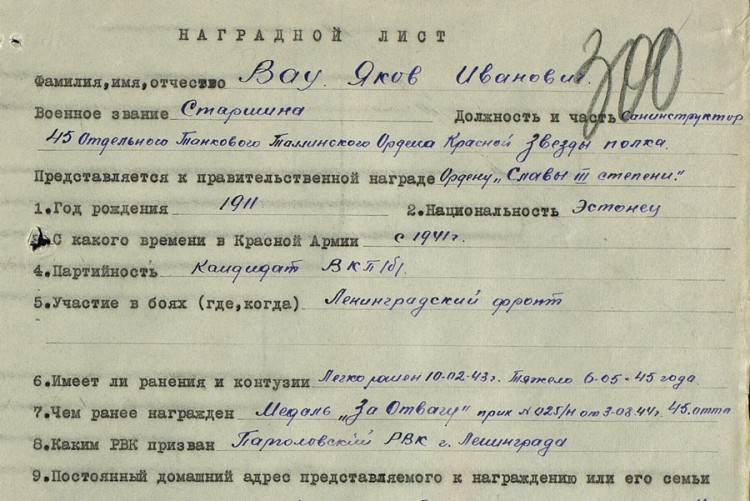 НАГРАДНОЙ ЛИСТ
300
Фамилия,имя,отчество Вау Яков Иванович.
Военное звание Старшина Должность и часть Санинструктор
45 Отдельного Танкового Таллинского Ордена Красной Звезды полка.
Представляется к правительственной награде Ордену „Славы III степени."
1.Год рождения 1911 2.Национальность Эстонец
С какого времени в Красной Армии с 1941г.
4.Партийность Кандидат ВКП/б/.
5.Участие в боях (где,когда) Ленинградский фронт
6.Имеет ли ранения и контузии Легко ранен 10-02-43г. Тяжело 6-05-45 года
7.Чем ранее награжден Медаль „За Отвагу" прик №025/н от 3-08.44г. 45.оттп
8.Каким РВК призван Парголовский РВК г. Ленинграда
9.Постоянный домашний адрес представляемого к награждению или его семьи